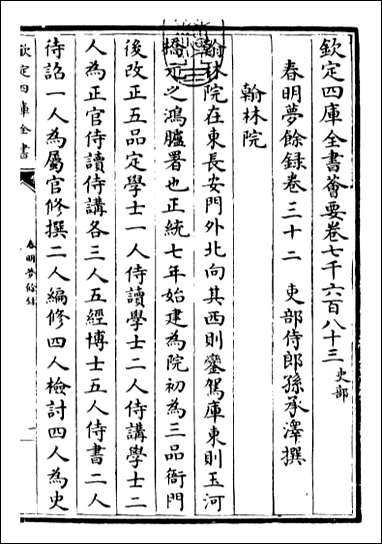 欽定四庫全書薈要卷七千六百八十三 史部
春明夢餘録卷三十二 吏部侍郎孫承澤撰
翰林院
翰林院在東長安門外北向其西則鑾駕庫東則玉河
橋元之鴻臚署也正統七年始建為院初為三品衙門
後改正五品定學士一人侍讀學士二人侍講學士二
人為正官侍讀侍講各三人五經博士五人侍書二人
待詔一人為屬官修撰二人編修四人檢討四人為史
欽定四庫全書
春明夢餘録
一